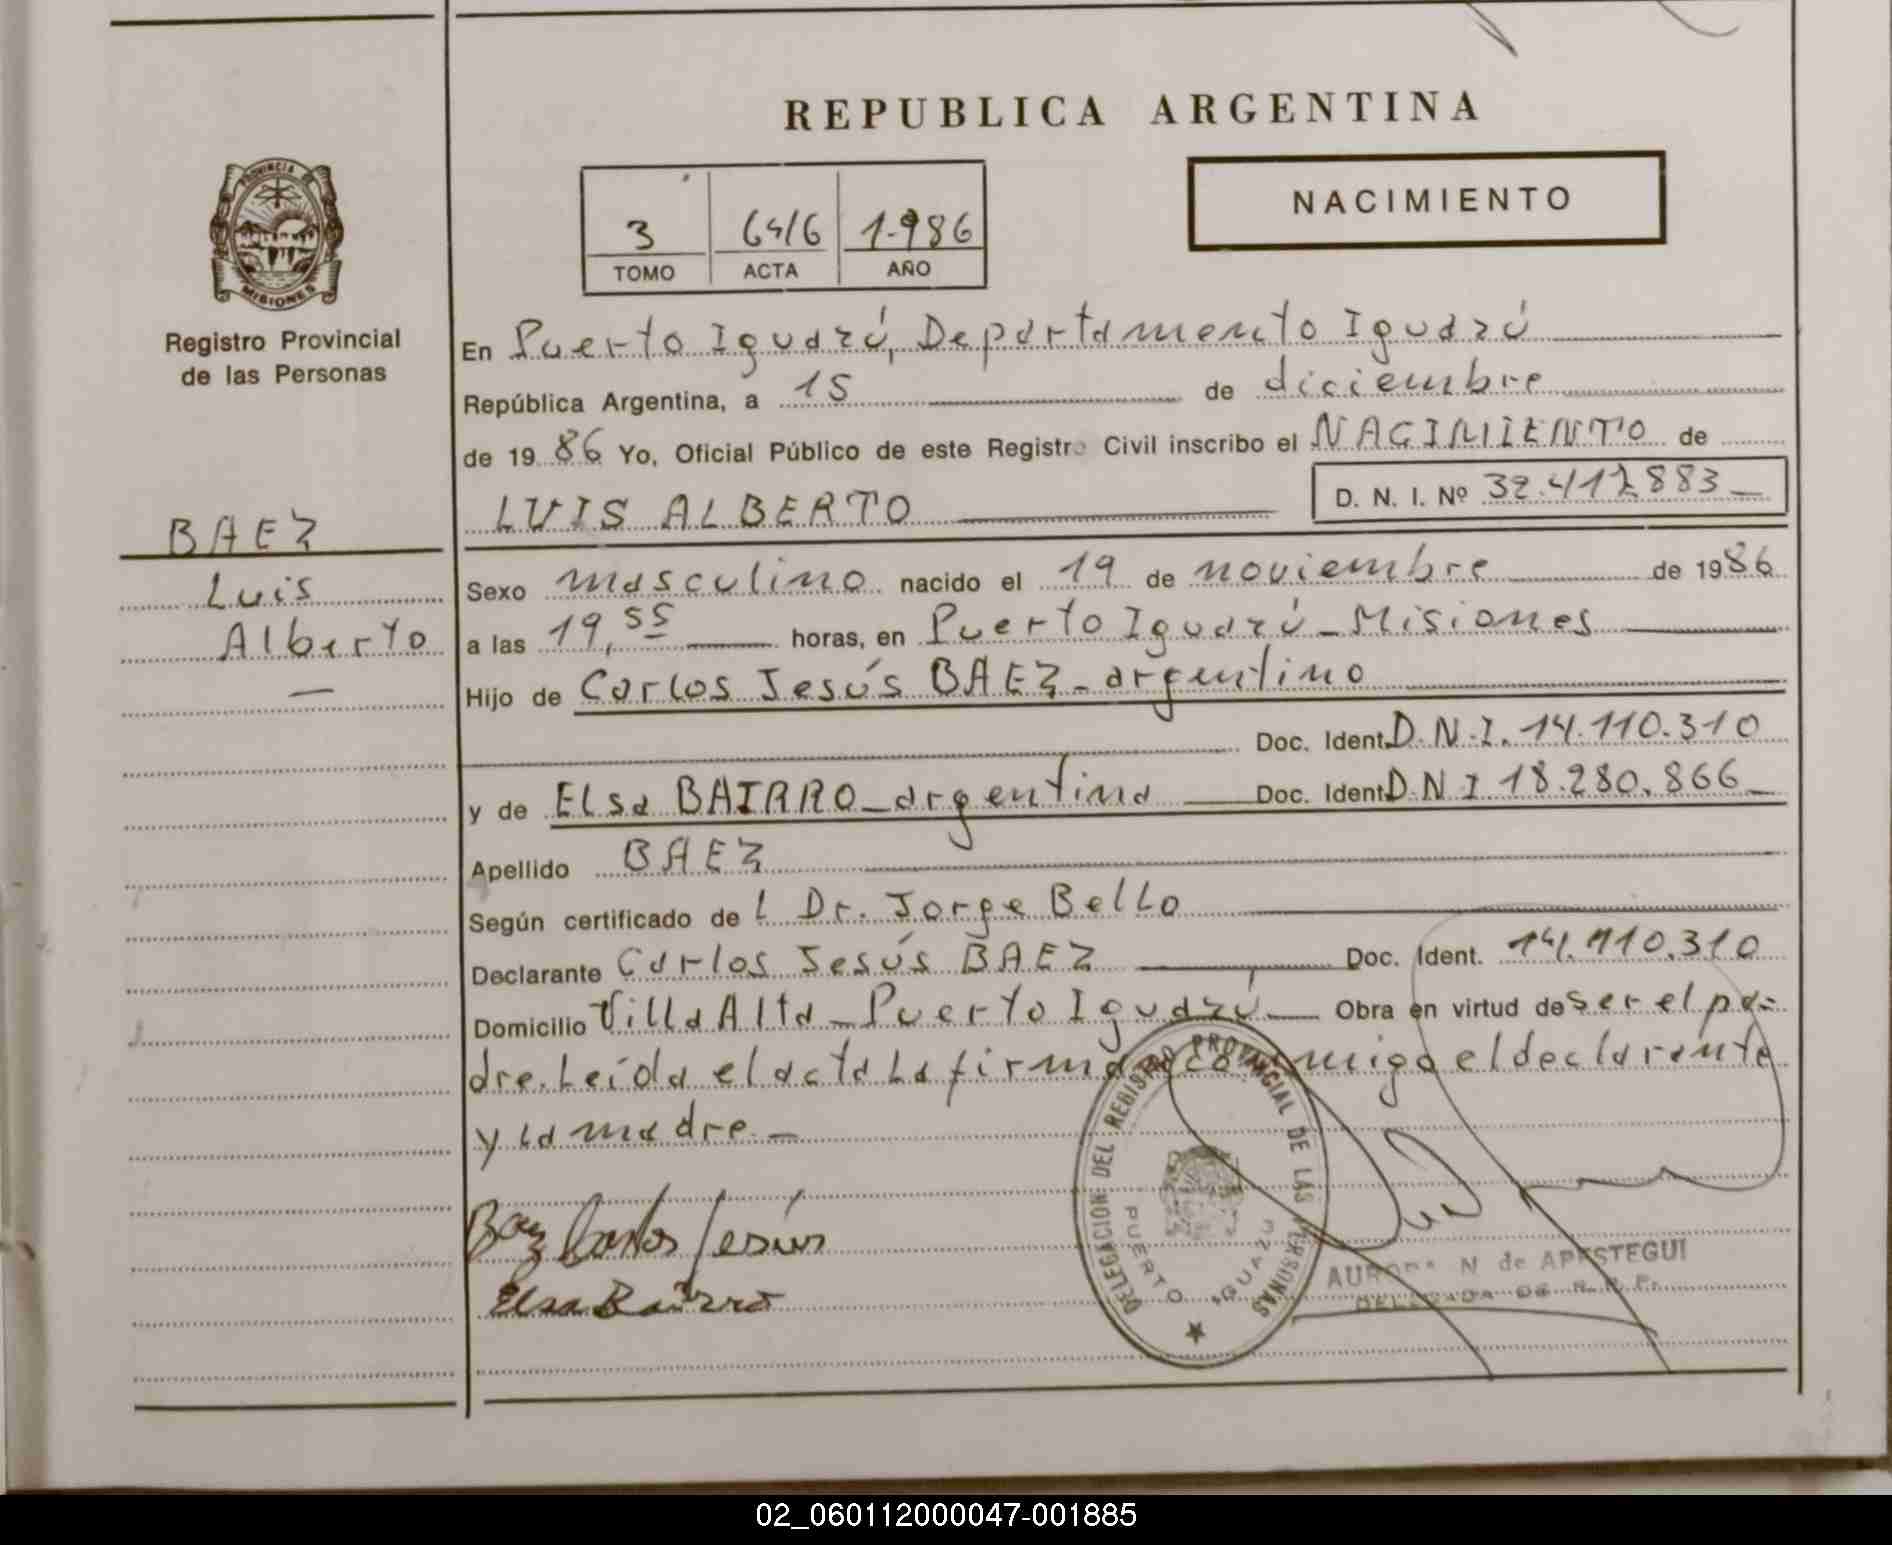 REPUBLICA ARGENTINA
PROVINCIA DE
MISIONES
Registro Provincial
de las Personas
3 6416 1.986
TOMO ACTA AÑO
NACIMIENTO
En Puerto Iguazú, Departamento Iguazú
República Argentina, a 15 de diciembre
de 1986 Yo, Oficial Público de este Registro Civil inscribo el NACIMIENTO de
LUIS ALBERTO D. N. I. Nº 32.417.883
BAEZ
Luis
Alberto
Sexo masculino nacido el 19 de noviembre de 1986
a las 19,55 horas, en Puerto Iguazú - Misiones
Hijo de Carlos Jesús BAEZ - argentino
Doc. Ident. D.N.I. 14.110.310
y de Elsa BAIRRO - argentina Doc. Ident. D.N.I 18.280.866
Apellido BAEZ
Según certificado de l Dr. Jorge Bello
Declarante Carlos Jesús BAEZ Doc. Ident. 14.110.310
Domicilio Villa Alta - Puerto Iguazú - Obra en virtud de ser el pa=
dre. Leída el acta la firma conmigo el declarante
y la madre. -
Baez Carlos Jesús
Elsa Bairro
DELEGACION DEL REGISTRO PROVINCIAL DE LAS PERSONAS
PUERTO IGUAZU
AURORA N de APESTEGUI
DELEGADA DE R.P.P.
02_060112000047-001885